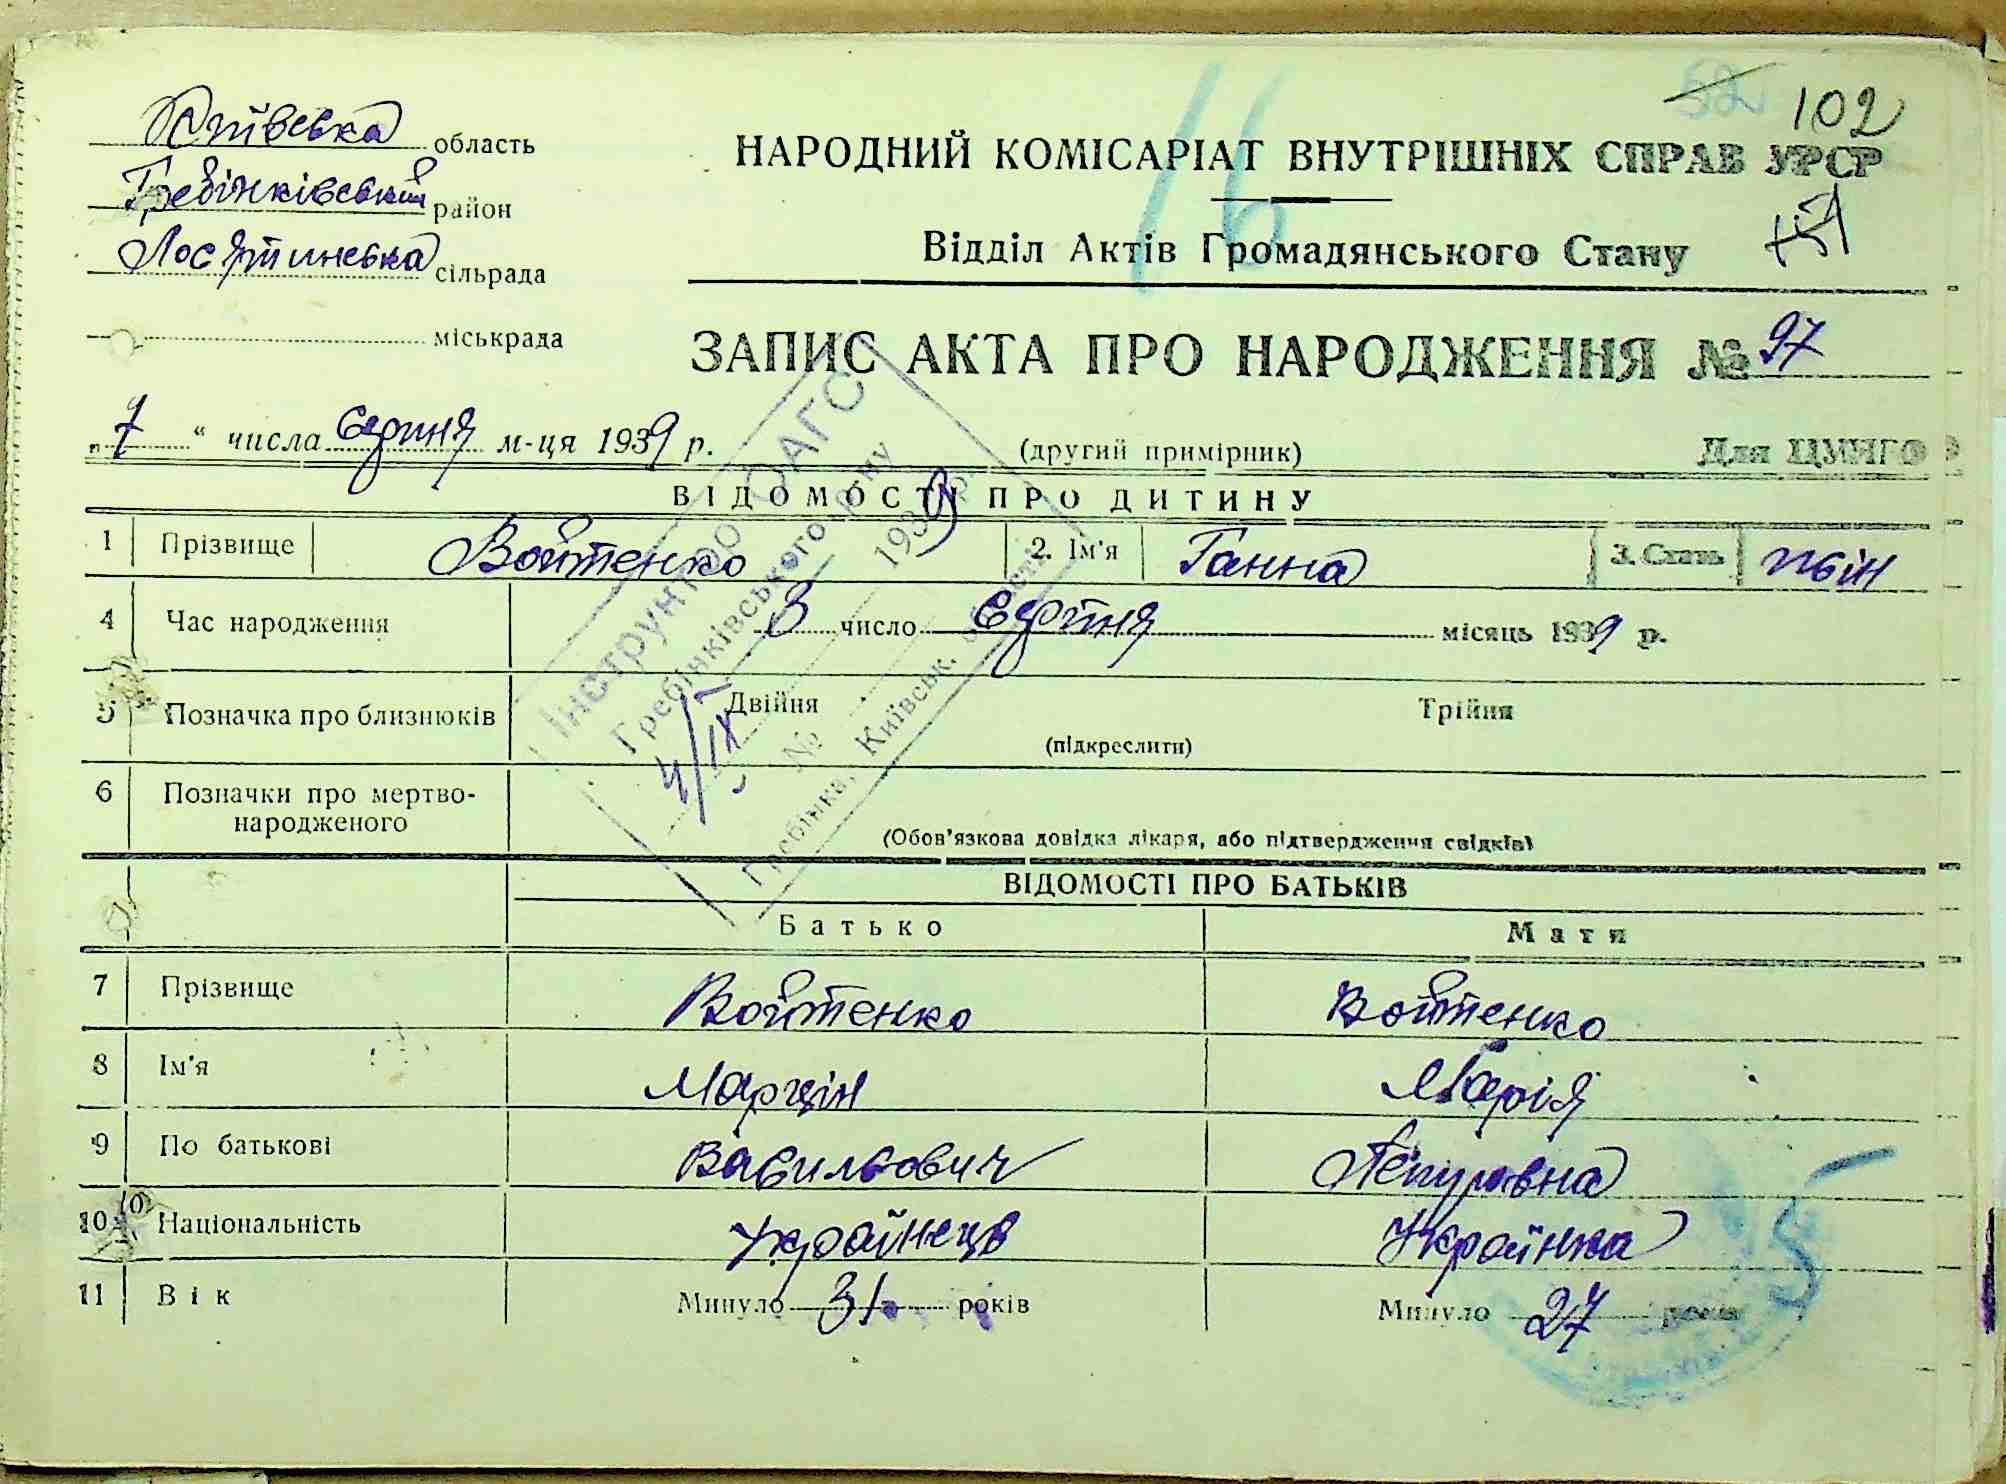 102
Київська область
Гребінківський район
Лосятинська сільрада
міськрада
16
НАРОДНИЙ КОМІСАРІАТ ВНУТРІШНІХ СПРАВ УРСР
Відділ Актів Громадянського Стану
ЗАПИС АКТА ПРО НАРОДЖЕННЯ № 97
„7“ числа серпня м-ця 1939 р.
(другий примірник)
Для ЦУНГО
ВІДОМОСТІ ПРО ДИТИНУ
1 Прізвище Войтенко 2. Ім'я Ганна 3. Стать жін
4 Час народження 3 число серпня місяць 1939 р.
5 Позначка про близнюків Двійня Трійня
(підкреслити)
6 Позначки про мертво-
народженого
(Обов'язкова довідка лікаря, або підтвердження свідків)
Інструктор ОАГС
Гребінківського р-ну
4/IX 1939 р.
№
Гребінка, Київськ. області
ВІДОМОСТІ ПРО БАТЬКІВ
Батько Мати
7 Прізвище Войтенко Войтенко
8 Ім'я Марцін Марія
9 По батькові Васильович
10 Національність Українець Українка
11 Вік Минуло 31 років Минуло 27 років